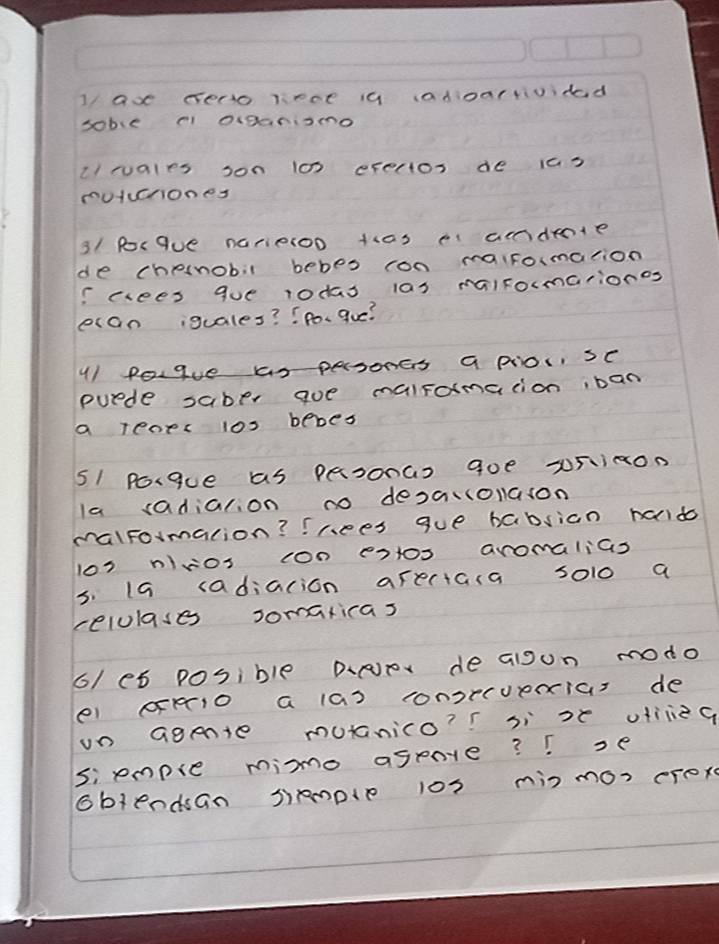 1/ que efecto tiene la radioactividad
sobre el organismo
2/ cuales son los efectos de las
mutaciones
3/ Porque nacieron tras el accidente
de chernobil bebes con malformacion
¿ crees que todas las malformaciones
eran iguales? ¿Por que?
4/ Porque las personas a priori se
puede saber que malformacion iban
a tener los bebes
5/ Porque las personas que sufrieron
la radiacion no desarrollaron
malformacion? ¿crees que habrian nacido
los niños con estos anomalias
si la radiacion afectara solo a
celulares somaticas
6/ es posible prever de algun modo
el efecto a las consecuencias de
un agente mutanico? ¿ si se utiliza
siempre mismo agente? ¿ se
obtendran siempre los mismos